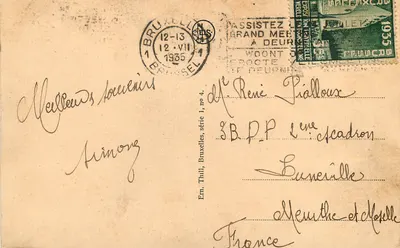 BRUXELLES 1
12-13
12 · VII
1935
BRUSSEL
ASSISTEZ
GRAND MEE
A DEUR
WOONT
1935
Meilleurs souvenirs
Simone
Ern. Thill, Bruxelles, série 1, no 4.
Mr René Pialloux
3 B. D. P 2ème Escadron
Luneville
Meurthe et Moselle
France